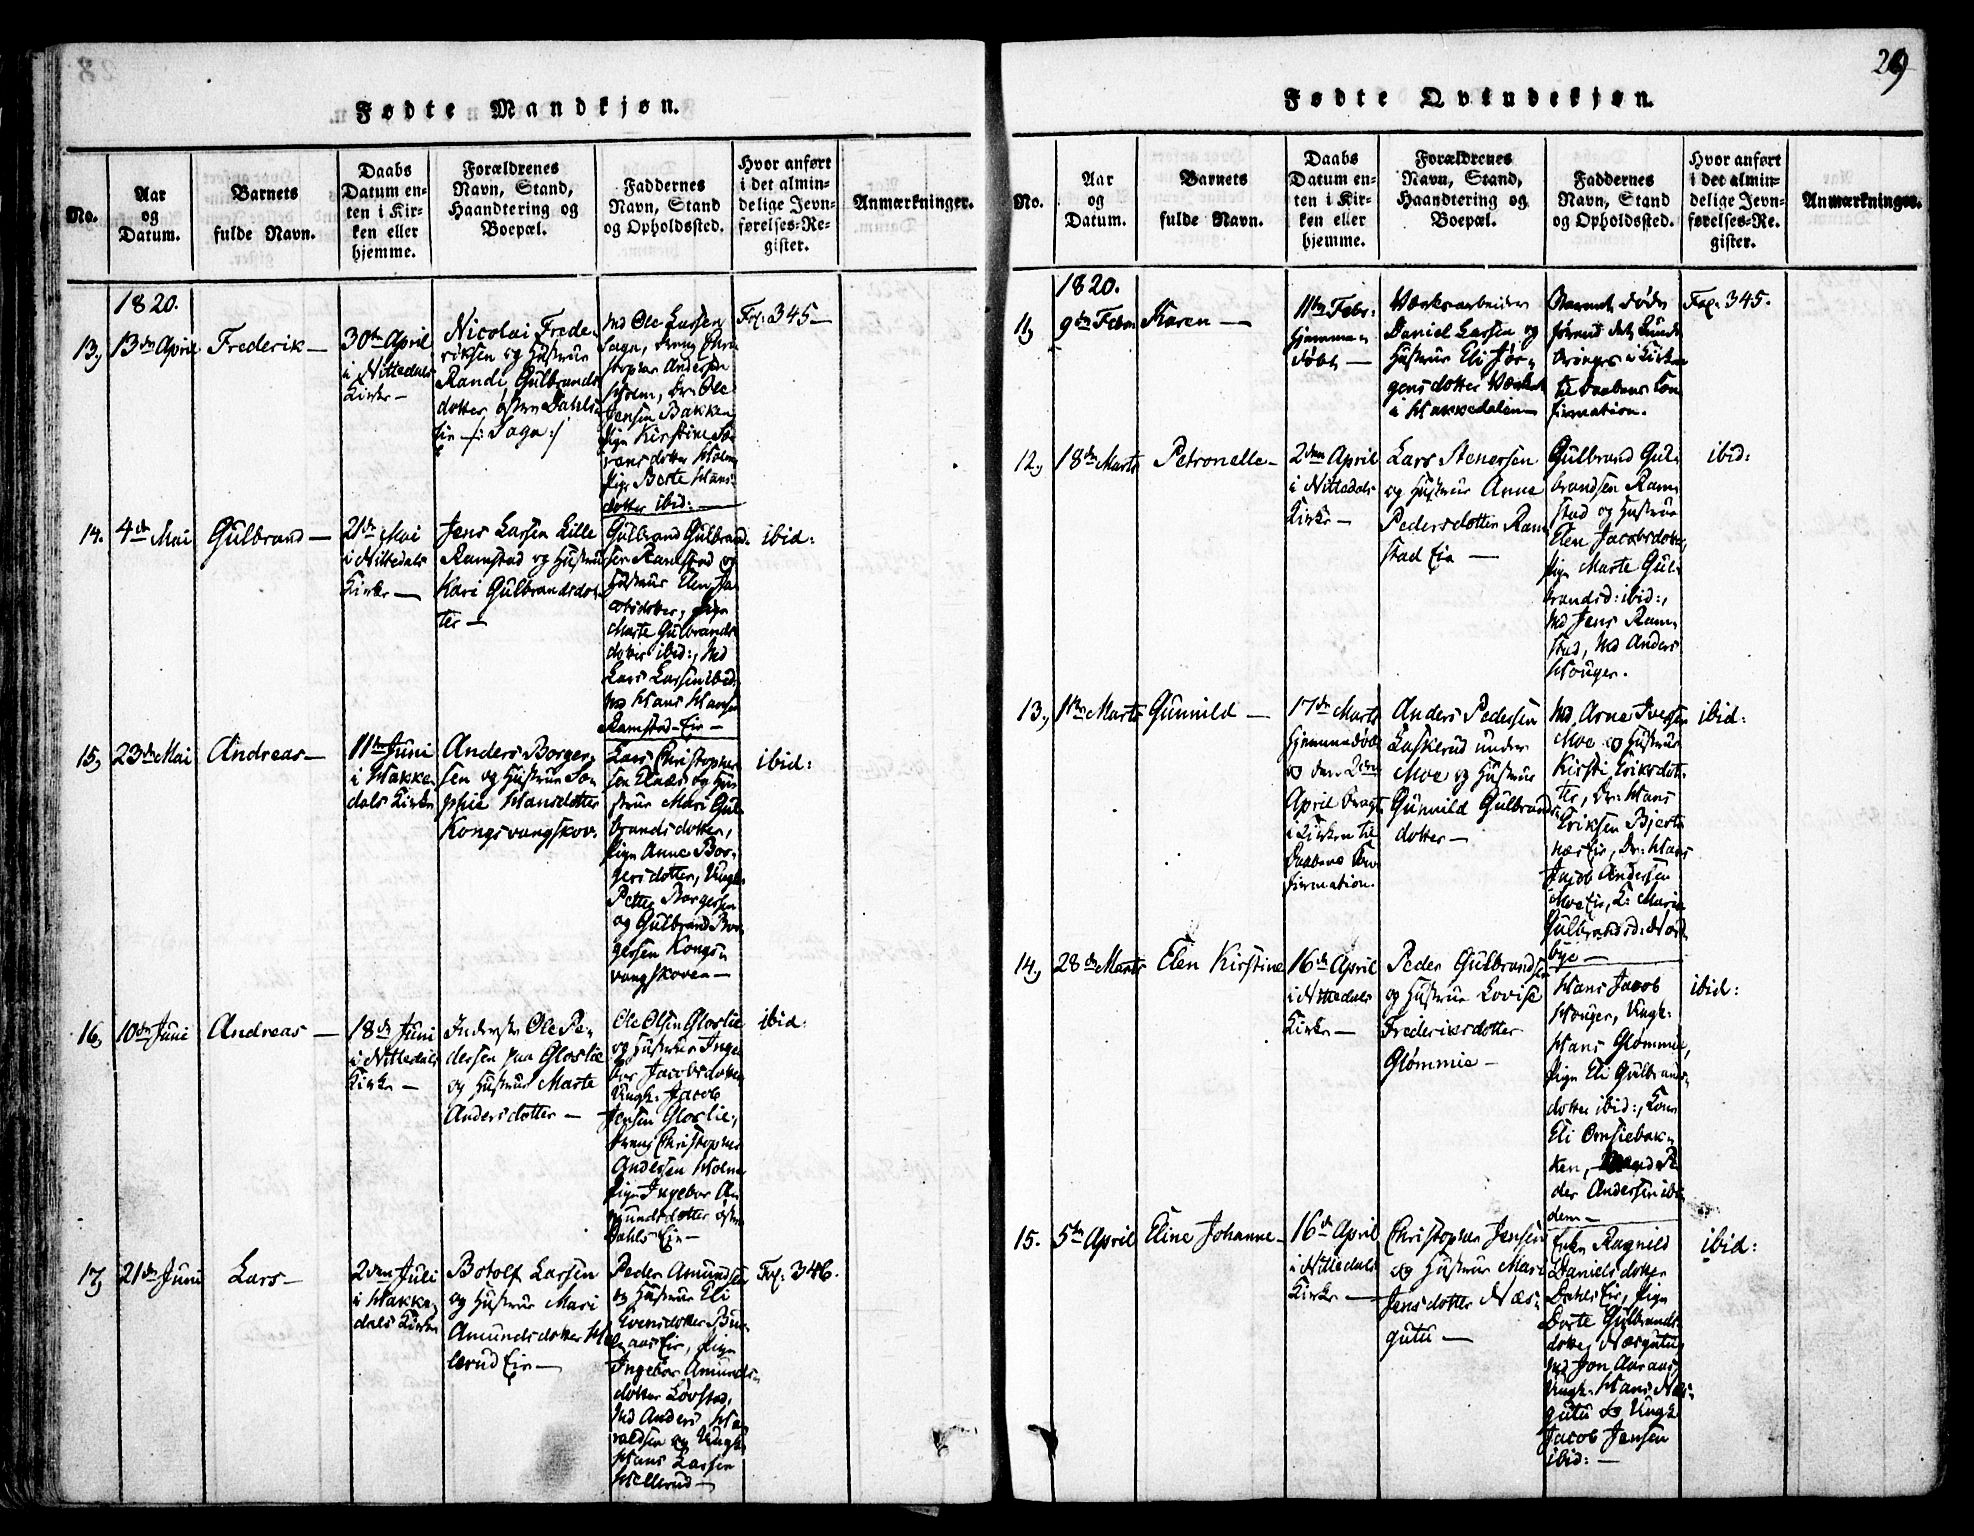 Fødte Mandkjøn.
No.
Aar
og
Datum.
Barnets
fulde Navn.
Daabs
Datum en-
ten i Kir-
ken eller
hjemme.
Forældrenes
Navn, Stand,
Haandtering og
Boepæl.
Faddernes
Navn, Stand
og Opholdssted.
Hvor anført
i det almin-
delige Jevn-
førelses-Re-
gister.
Anmærkninger.
1820.
13,
13de April
Frederik
30te April
i Nittedals
Kirke
Nicolai Frede-
riksen og Hustrue
Randi Gulbrands
dotter, østre Dahls
Eie /: Sagn :/
Md Ole Larsen
Sagn, Dreng Chri
stopher Andersen
Holm, Dr: Ole
Jensen Bakken
Pige Kirstine Sø-
rensdotter Holm
Pige Berte Hans-
dotter ibid:
Fol: 345
14.
4de Mai
Gulbrand
21de Mai
i Nittedals
Kirke
Jens Larsen Lille
Ramstad og Hustrue
Kari Gulbrandsdot
ter
Gulbrand Gulbrand-
sen Ramstad og
Hustrue Elen Ja-
cobsdotter, Pige
Marte Gulbrands
dotter ibid:, Md
Lars Larsen ibid:
Md Hans Hansen
Ramstad Eie
ibid:
15,
23de Mai
Andreas
11te Juni
i Hakke
dals Kirke
Anders Borger-
sen og Hustrue So-
phie Hansdotter
Kongsvangskov.
Lars Christopher
sen og Hu-
strue Mari Gul-
brandsdotter,
Pige Anne Bor-
gersdotter, Ungk:
Petter Borgersen
og Gulbrand Bor-
gersen Kongs-
vangskoven
ibid:
16,
10de Juni
Andreas
18de Juni
i Nittedals
Kirke
Inderster Ole Pe-
dersen paa Gloslie
og Hustrue Marte
Andersdotter
Ole Olsen Gloslie
og Hustrue Inge
bor Jacobsdotter
Ungk: Jacob
Jensen Gloslie,
Dreng Christopher
Andersen Holm
Pige Ingebor A-
mundsdotter østre
Dahls Eie
ibid:
17,
21de Juni
Lars
2den Juli
i Hakke-
dals Kirke
Botolf Larsen
og Hustrue Mari
Amundsdotter Hel
lerud Eie
Peder Amundsen
og Hustrue Eli
Evensdotter
Eie, Pige
Ingebor Amunds-
dotter Løvstad,
Md Anders Ha-
raldsen og Ungk:
Hans Larsen
Hellerud
Fol: 346.
29
Fødte Qvindekjøn.
No.
Aar
og
Datum.
Barnets
fulde Navn.
Daabs
Datum en-
ten i Kir-
ken eller
hjemme.
Forældrenes
Navn, Stand,
Haandtering og
Boepæl.
Faddernes
Navn, Stand
og Opholdssted.
Hvor anført
i det almin-
delige Jevn-
førelses-Re-
gister.
Anmærkninger.
1820.
11,
9de Febr
Karen
11te Febr:
hjemme-
døbt
Værksarbeider
Daniel Larsen og
Hustrue Eli Jør-
gensdotter Værket
i Hakkedalen
Barnet døde
førend det kunde
bringes i Kirken
til Daabens Con
firmation.
Fol: 345.
12,
18de Marts
Petronelle
2den April
i Nittedals
Kirke
Lars Stenersen
og Hustrue Anne
Pedersdotter Ram
stad Eie
Gulbrand Gul-
brandsen Ram-
stad og Hustrue
Elen Jacobsdotter,
Pige Marte Gul-
brandsd: ibid:,
Md Jens Ram-
stad, Md Anders
Houger.
ibid:
13,
11te Marts
Gunnild
17de Marts
hjemmedøbt
og den 2den
April bragt
i Kirken til
Daabens Con-
firmation.
Anders Pedersen
Laskerud under
Moe og Hustrue
Gunnild Gulbrands
dotter
Md Arne Iversen
Moe og Hustrue
Kirsti Eriksdot-
ter, Dr: Hans
Eriksen Bjert-
næs Eie, Dr: Hans
Jacob Andersen
Moe Eie, K: Marie
Gulbrandsd: Nord
bye
ibid:
14,
28de Marts
Elen Kirstine
16de April
i Nittedals
Kirke
Peder Gulbrandsen
og Hustrue Lovise
Frederiksdotter
Glømmie
Hans Jacob
Houger, Ungk:
Hans Glømmie,
Pige Eli Gulbrands-
dotter ibid:, Kone
Eli Ørnsiebak-
ken, Pe
der Andersen ibi
dem
ibid:
15.
5te April
Eline Johanne
16de April
i Nittedals
Kirke
Christopher Jensen
og Hustrue Mari
Jensdotter Næs-
gutu
Enke Ragnild
Danielsdotter
Dahls Eie, Pige
Dorte Gulbrands-
dotter Næsgutu,
Md Jon Aaraas,
Ungk: Hans Næs-
gutu og Ungk
Jacob Jensen
ibid:
ibid: